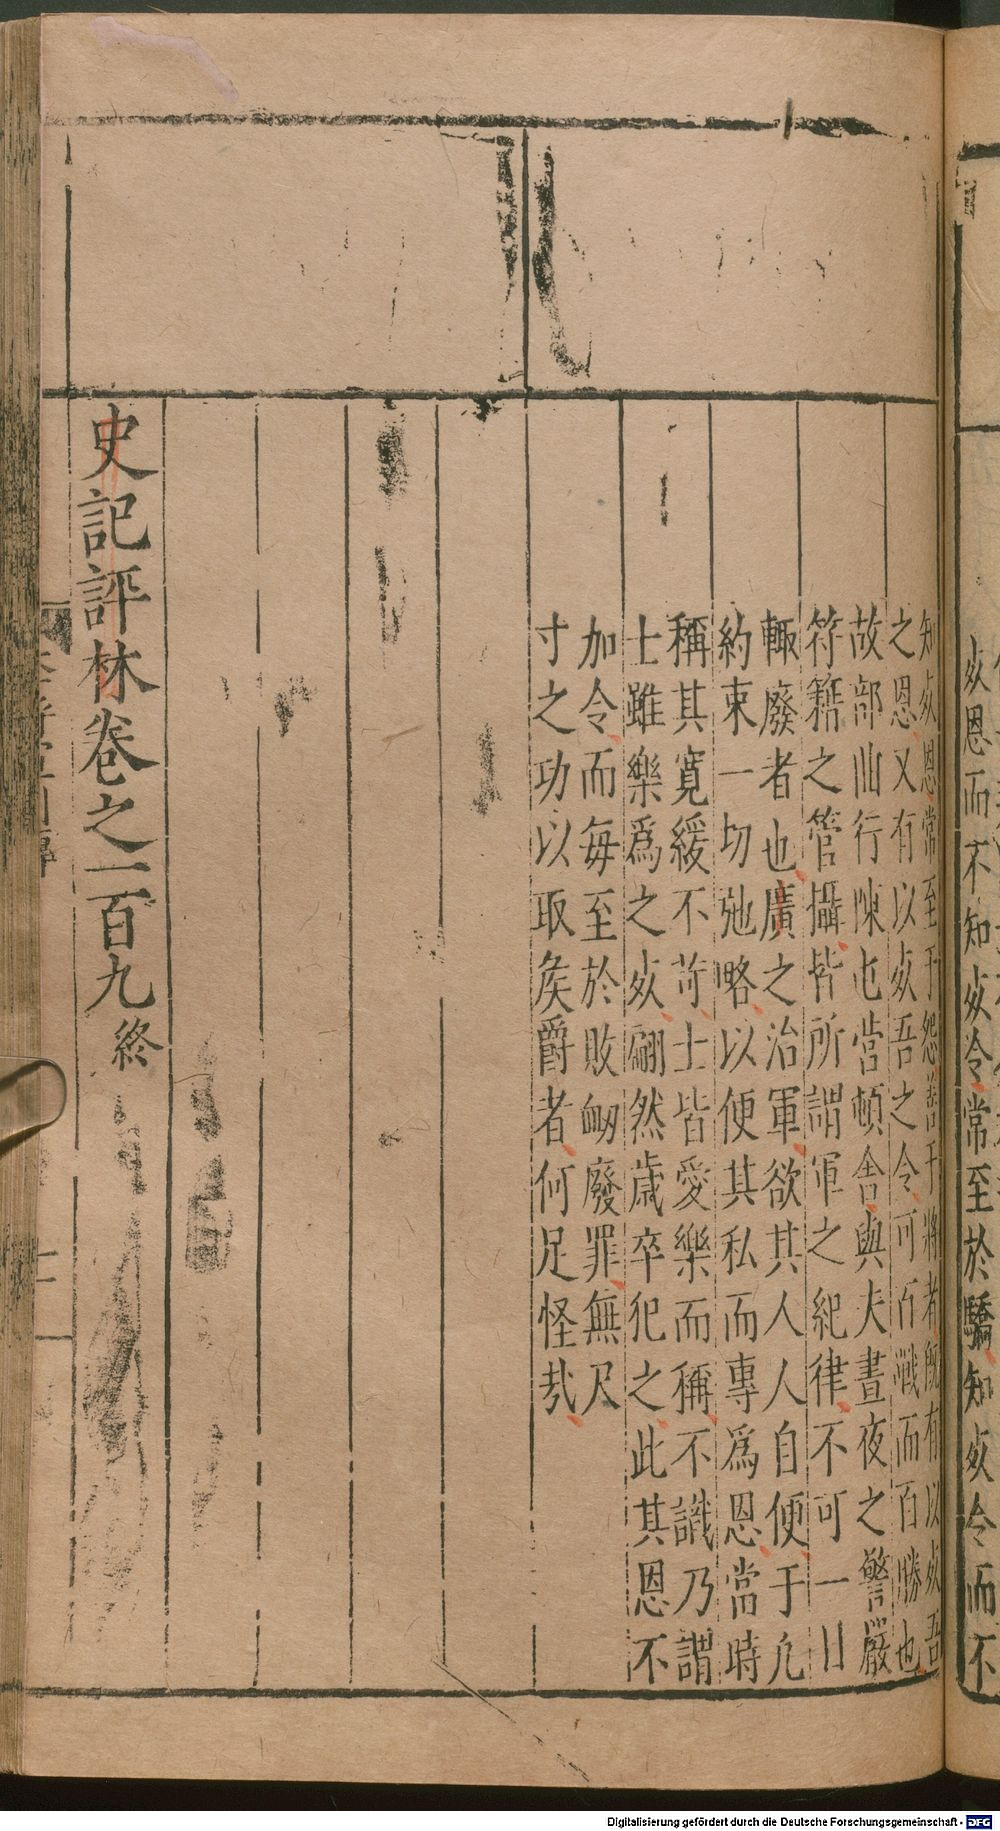 死恩而不知死令常至於驕知死令而不
知死恩常至于怨善于將者既有以死吾
之恩又有以死吾之令可百戰而百勝也
故部曲行陳屯營頓舍與夫晝夜之警嚴
符籍之管攝皆所謂軍之紀律不可一日
輙廢者也廣之治軍欲其人人自便于凢
約束一切弛略以便其私而專爲恩當時
稱其寬緩不苛士皆愛樂而稱不識乃謂
士雖樂爲之死翩然歲卒犯之此其恩不
加令而每至於敗衂廢罪無尺
寸之功以取矦爵者何足怪哉
史記評林卷之一百九終
Digitalisierung gefördert durch die Deutsche Forschungsgemeinschaft - DFG